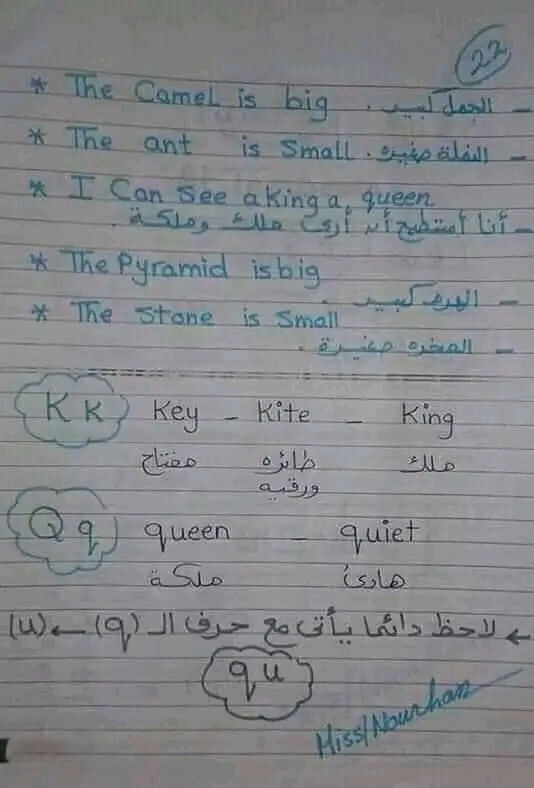 22
* The Camel is big . - الجمل كبير
* The ant is Small . - النملة صغيرة
* I Can See a King a, queen
- أنا أستطيع أن أرى ملك وملكة .
* The Pyramid is big
- الهرم كبير .
* The Stone is Small
- الصخره صغيرة .
K k Key - Kite - King
مفتاح طائره ملك
ورقيه
Q q queen - quiet
ملكة هادئ
← لاحظ دائما يأتى مع حرف الـ (q) ← (u)
qu
Miss/Nourhan